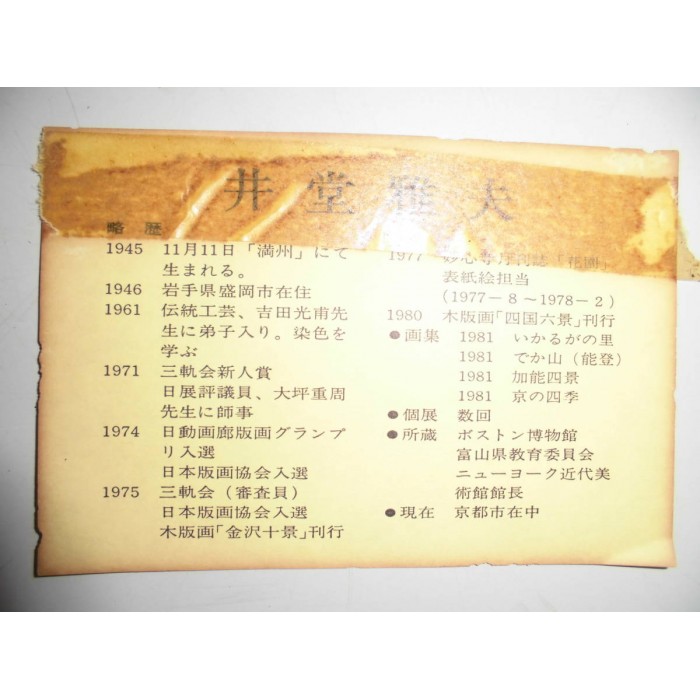 井堂雅夫
略歴
1945 11月11日「満州」にて
生まれる。
1946 岩手県盛岡市在住
1961 伝統工芸、吉田光甫先
生に弟子入り。染色を
学ぶ
1971 三軌会新人賞
日展評議員、大坪重周
先生に師事
1974 日動画廊版画グランプ
リ入選
日本版画協会入選
1975 三軌会（審査員）
日本版画協会入選
木版画「金沢十景」刊行
1977 妙心寺月刊誌「花園」
表紙絵担当
(1977－8～1978－2)
1980 木版画「四国六景」刊行
●画集 1981 いかるがの里
1981 でか山（能登）
1981 加能四景
1981 京の四季
●個展 数回
●所蔵 ボストン博物館
富山県教育委員会
ニューヨーク近代美
術館館長
●現在 京都市在中